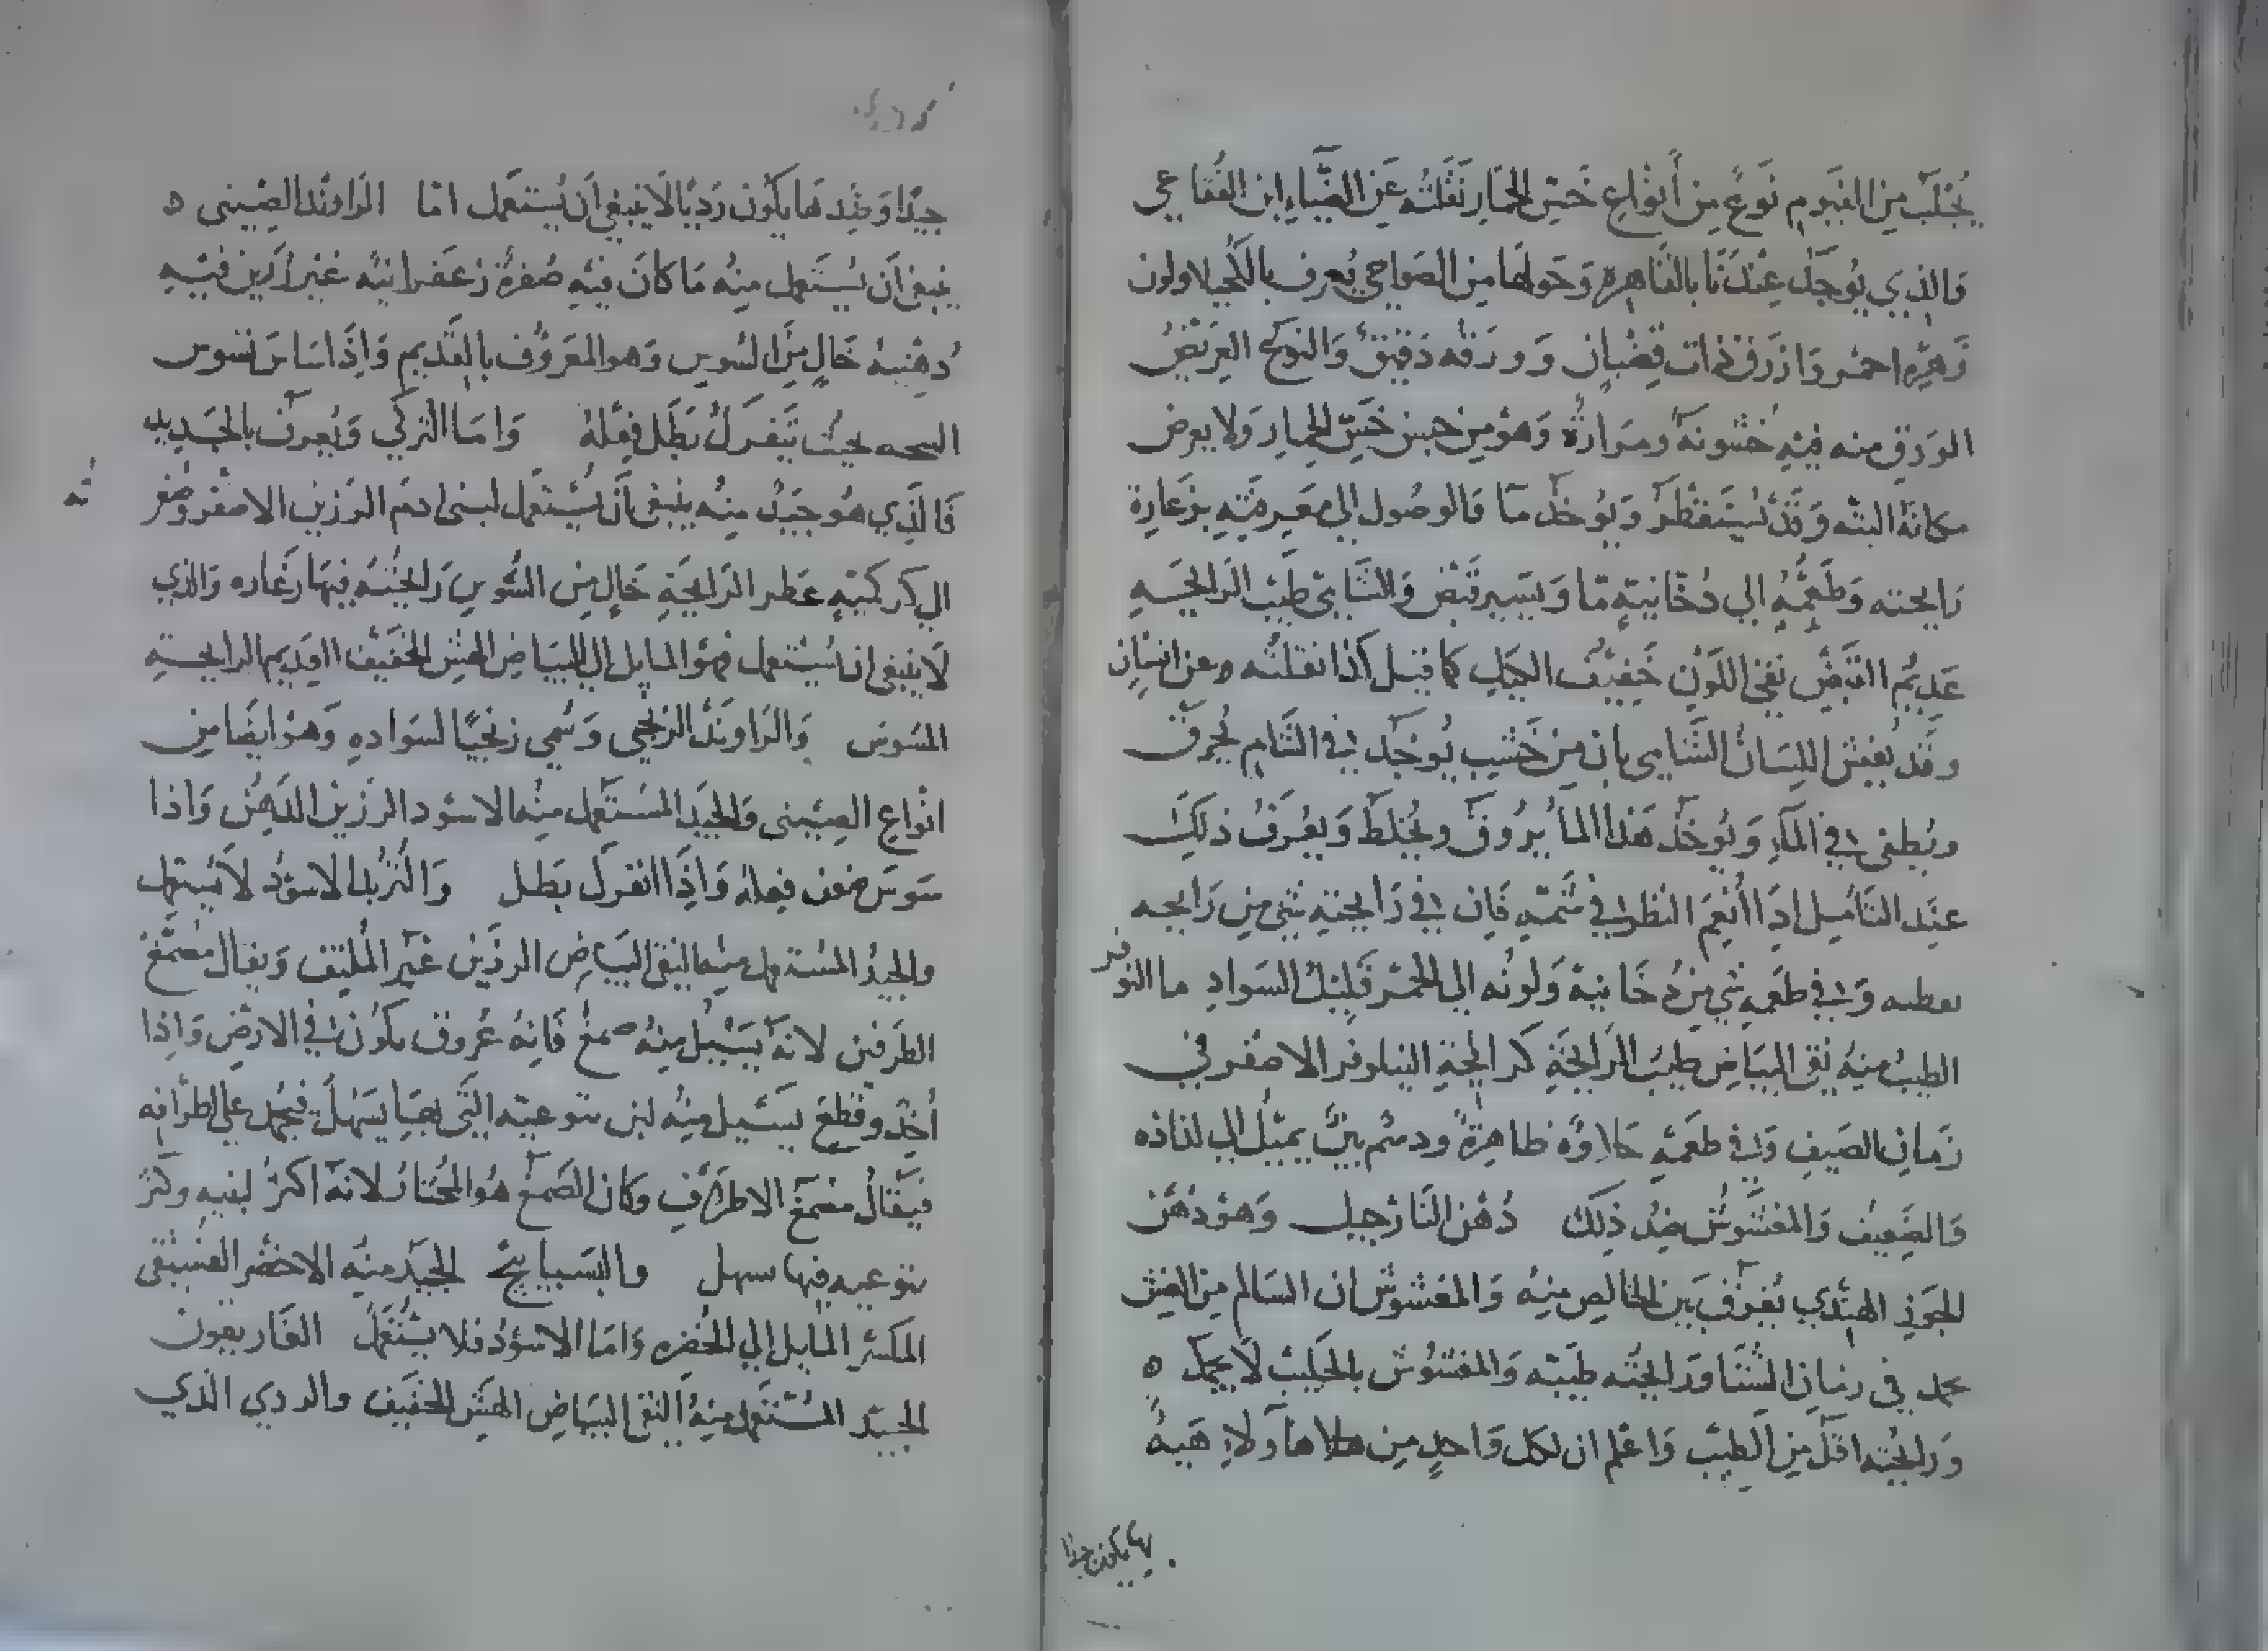 يُجْلَبُ مِن الفيوم نَوعٌ مِن أَنواع خَسِّ الحمار نَقَلتُه عَن الضياء ابن القفاعي
وَالذي يُوجَد عِندَنَا بالقاهرة وَحَولها مِن الضواحي يُعرف بالكحيلا ولون
زَهره احمر وَازرق ذات قضبان وَورَقه دَقيق وَالبوكح العَريض
الورَق منه فيه خشونة ومرارة وَهو مِن جنس خَسّ الحمار وَلا يعرض
مكانه البتة وَقد يُستقطر وَيُوخذ ما فالوصول الى معرفته بزعارة
رَايحته وَطَعمُه الي دُخَّانيةٍ مّا وَيَسير قَبض وَالشامي طَيّب الرايحَه
عَدِيمُ القَبضِ نقي اللَون خَفيف الجلب كما قيل كذا نقلته وعن انسان
وقَد يُغش اللِسَانُ الشامي بان مِن خَشب يُوجَد في الشام يُحرَق
ويُطفى في الماء وَيُوخَذ هَذا الماء يُروق ويُخلَط وَيعرَفُ ذلكَ
عندَ التأميل اذا أُنعِمَ النظر في شَمّه فَان في رَايحته شي مِن رَايحه
وَفي طَعمه شي مِن دُخَانية وَلونه الي الحمر قليل السَواد ما النو فر
الطيبُ منه نقي البياض طيب الرايحَة كرايحة النيلوفر الاصفر في
زَمان الصَيف وَفي طعمه حَلاوَة ظاهِرَة ودسم بَيّن يميل الى لذاذه
وَالضَعِيف وَالمغشُوش ضِدُ ذلِكَ دُهن النَارجيل وَهو دُهن
الجوز الهندي يُفرق بَين الخالِصِ منه وَالمغشوش ان السَالم مِن الغش
يجمد في زمان الشتا وَرَايحته طَيبه وَالمغشوش بالحَليب لا يجمد ه
وَرَايحته اقلّ مِن الطيب وَاعلم ان لكل وَاحدٍ مِن هاولاء هيبةُ
بها يكون جيدا
جيدًا وَضِدهَا يَكون رَديًا لا ينبغي أن يُستعمل امّا الرَاوند الصيني ه
ينبغي أن يُستَعمل منه مَا كانَ فيه صُفرةٌ زعفرانيه غير أن فيه
دُهنيه خَالٍ مِن السُوس وَهو المعروف بالقديم وَاذا ساس نسوس
بحيث يَنفرك بَطَل فِعلهُ وَامَا التركي وَيُعرف بالجديد
فَالذي هُو جَيدُ منه ينبغي أن يُستَعمل ادم الرَزين الاصفر
الي كركميةٍ عَطر الرَايحة خَالٍ مِن السُوس رَايحته فيها زعاره وَالذي
لا ينبغي ان يستعمل فهو المايل الى البيَاض الهش الخفيف القديم الرايحة
المسَوس وَالرَاونَد الزنجي وَسُمي زنجيًا لسَواده وَهو ايضًا مِن
انواع الصيني وَالجيد المستعمل منها الاسود الرزين الدَهن وَاذا
سَوس ضعف فعله وَاذَا انفرك بَطل وَالتُربد الاسود لا يستعمل
والجيدُ المستعمل منها النقي البيَاض الرزين غَير المليف وَيقال مُصَمَّغ
الطرفين لانه يَسيل منه صمغ فَانه عُروق يكُون في الارض وَاذا
أُخذ وقطع يسَيل منه لبن يتوعيته التي بهَا يسهل فيجمل على اطرافه
فَيقالُ مصمَّغ الاطرَاف وَكان المصَمغ هُو المختار لانه اكثر لبنيه وكثر
يتوعيه فيها سهل والبَسبايج الجيد منه الاخضر الفستقي
المكسر المايل الي الخضره وَامَا الاسودُ فلا يُستَعمل الغَاريقون
الجَيد المستَعمل منه النقي البيَاض الهَش الخفيف والردي الذي